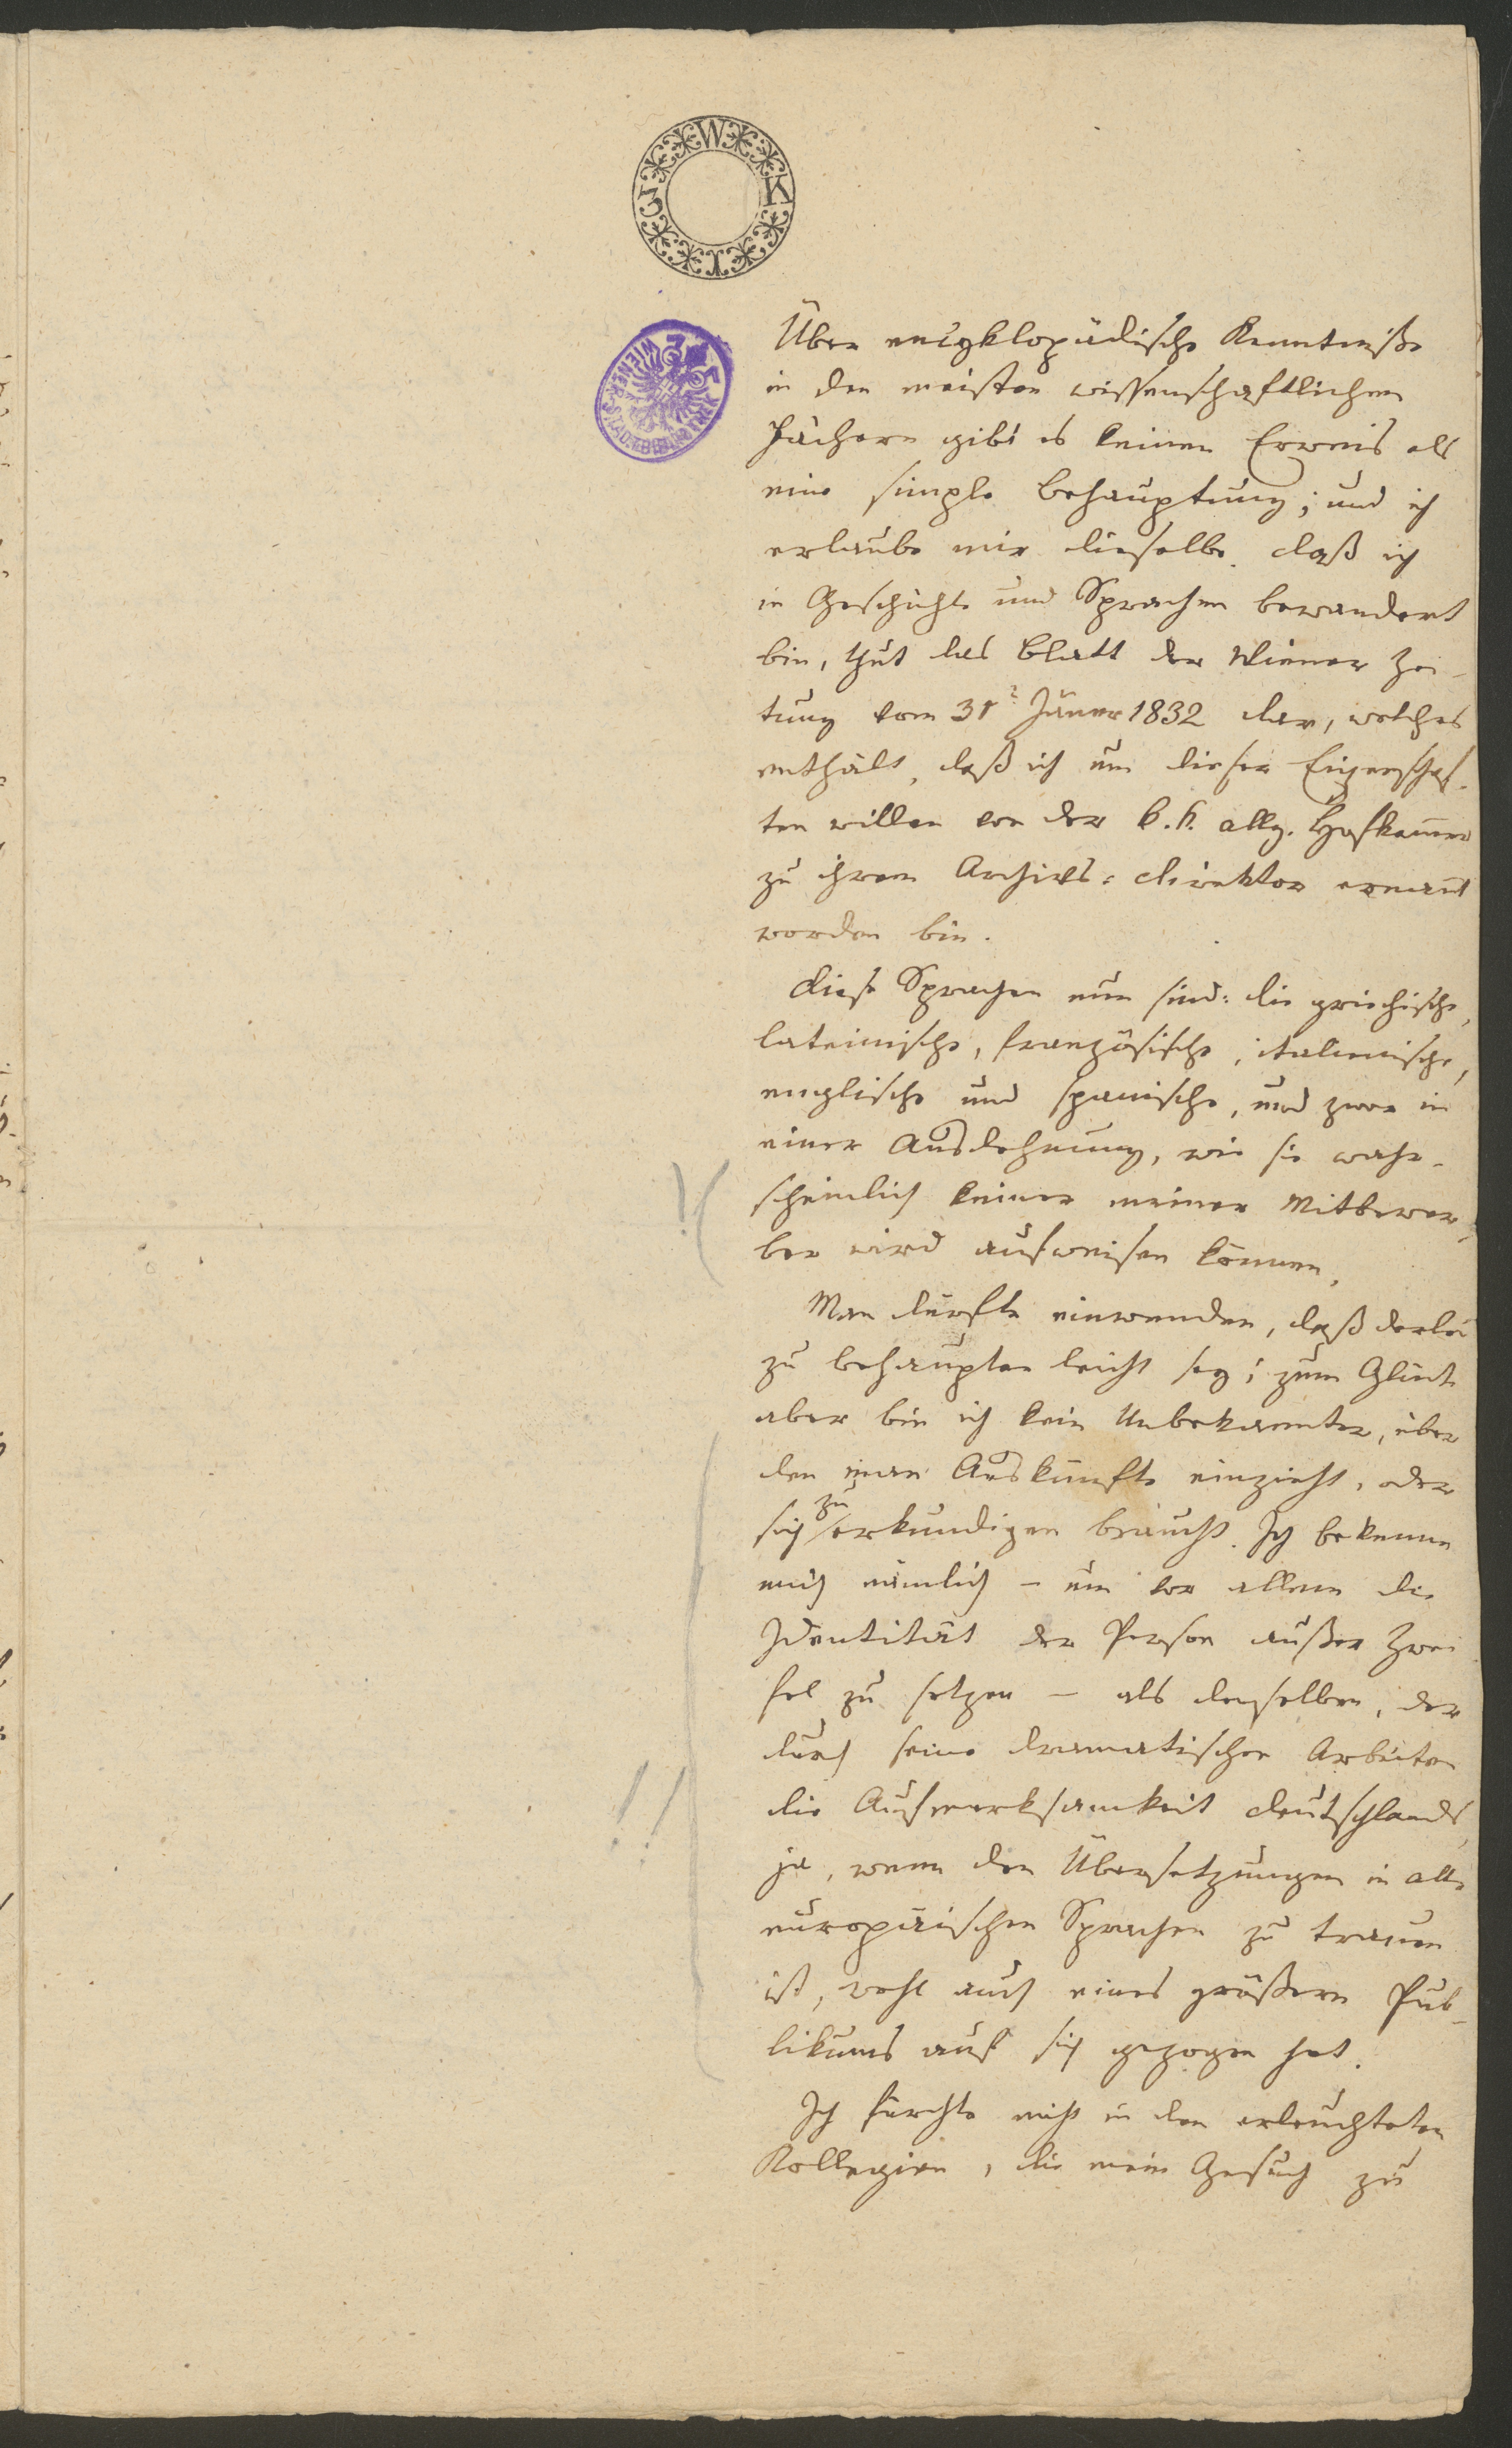 W K I Z
WIENER STADTBIBLIOTHEK
Über encyklopädische Kenntniße
in den meisten wissenschaftlichen
Fächern gibt es keinen Erweis als
eine simple Behauptung; und ich
erlaube mir dieselbe. daß ich
in Geschichte und Sprachen bewandert
bin, thut das Blatt der Wiener Zei-
tung vom 31t Jäner 1832 dar, welches
enthält, daß ich um dieser Eigenschaf-
ten willen von der k. k. allg. Hofkam̅er
zu ihrem Archivs-direktor ernan̅t
worden bin.
diese Sprachen nun sind: die griechische,
lateinische, französische, italienische,
englische und spanische, und zwar in
einer Ausdehnung, wie sie wahr-
scheinlich keiner meiner Mitbewer-
ber wird aufweisen können.
Man dürfte einwenden, daß derlei
zu behaupten leicht sey; zum Glück
aber bin ich kein Unbekannter, über
den man Auskünfte einzieht, oder
sich zu erkundigen braucht. Ich bekenne
mich nämlich – um vor allem die
Identität der Person außer Zwei
fel zu setzen – als denselben, der
durch seine dramatischen Arbeiten
die Aufmerksamkeit deutschlands,
ja, wenn den Übersetzungen in alle
europäischen Sprachen zu trauen
ist, wohl auch eines größern Pub-
likums auf sich gezogen hat.
Ich fürchte nicht in den erleuchteten
Kollegien, die mein Gesuch zu